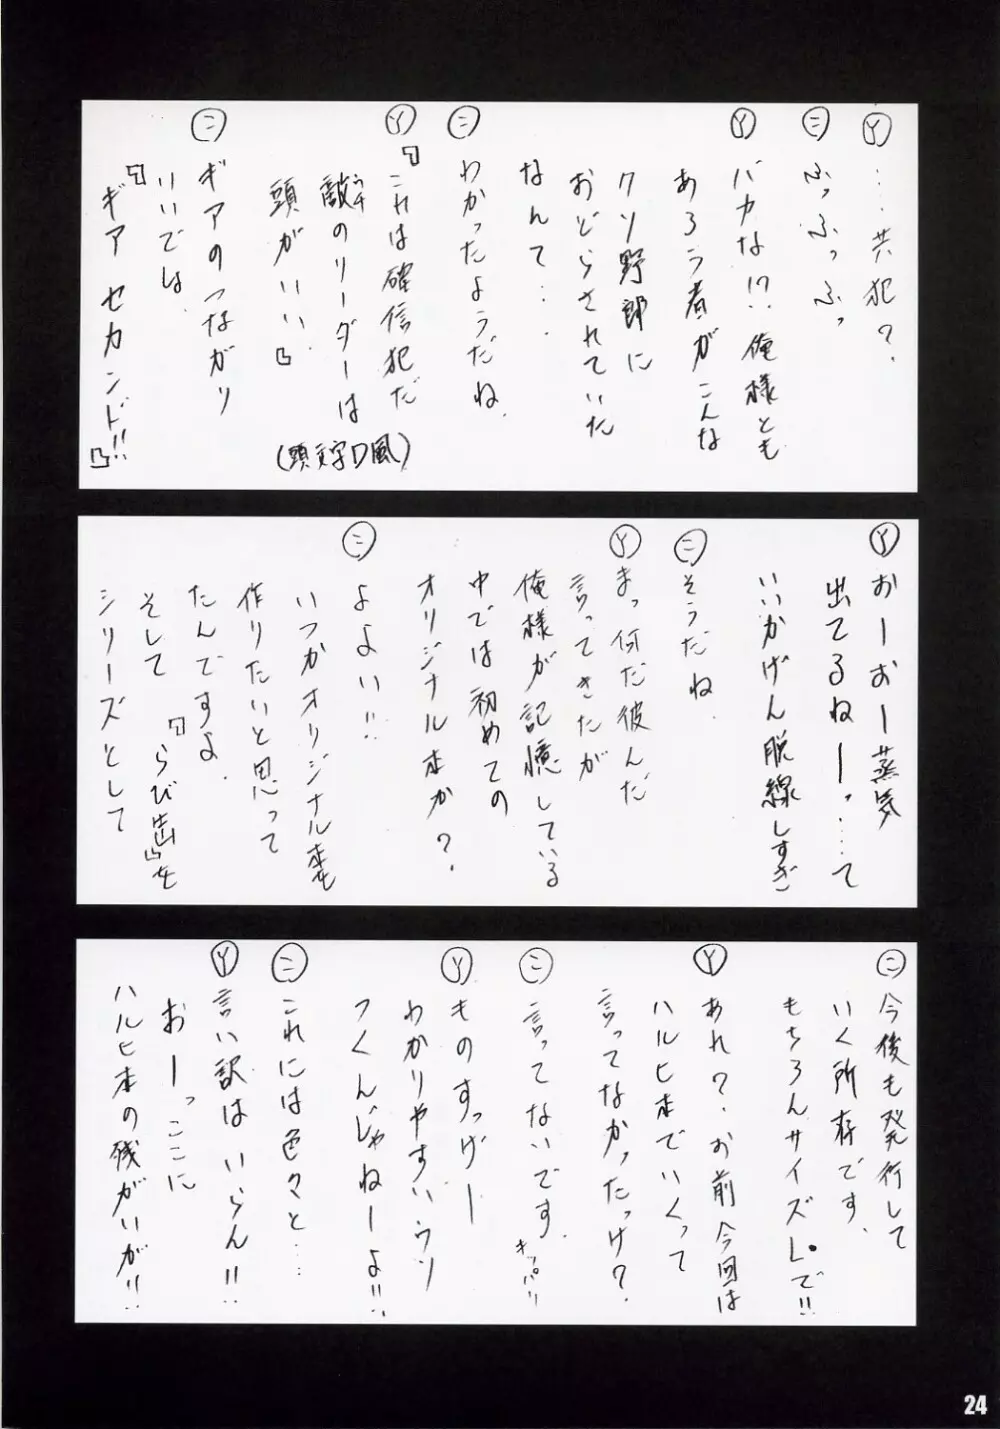 Ⓨ …共犯？
㊁ ふっふっふっ
Ⓨ バカな!? 俺様とも
あろう者がこんな
クソ野郎に
おどらされていた
なんて…
㊁ わかったようだね。
Ⓨ 『これは確信犯だ
敵のリーダーは
頭がいい』
（頭文字D風）
㊁ ギアのつながり
いいでは
『ギア セカンド!!』
Ⓨ おーおー蒸気
出てるねーっ…て
いいかげん脱線しすぎ
㊁ そうだね。
Ⓨ まっ何だ彼んだ
言ってきたが
俺様が記憶している
中では初めての
オリジナル本か？
㊁ よよい!!
いつかオリジナル本を
作りたいと思って
たんですよ。
そして『らび出』を
シリーズとして
㊁ 今後も発行して
いく所存です。
もちろんサイズLで!!
Ⓨ あれ？お前今回は
ハルヒ本でいくって
言ってなかったっけ？
㊁ 言ってないです。
キッパリ
Ⓨ ものすっげー
わかりやすいウソ
つくんじゃねーよ!!
㊁ これには色々と…
Ⓨ 言い訳はいらん!!
おーっここに
ハルヒ本の残がいが!!
24